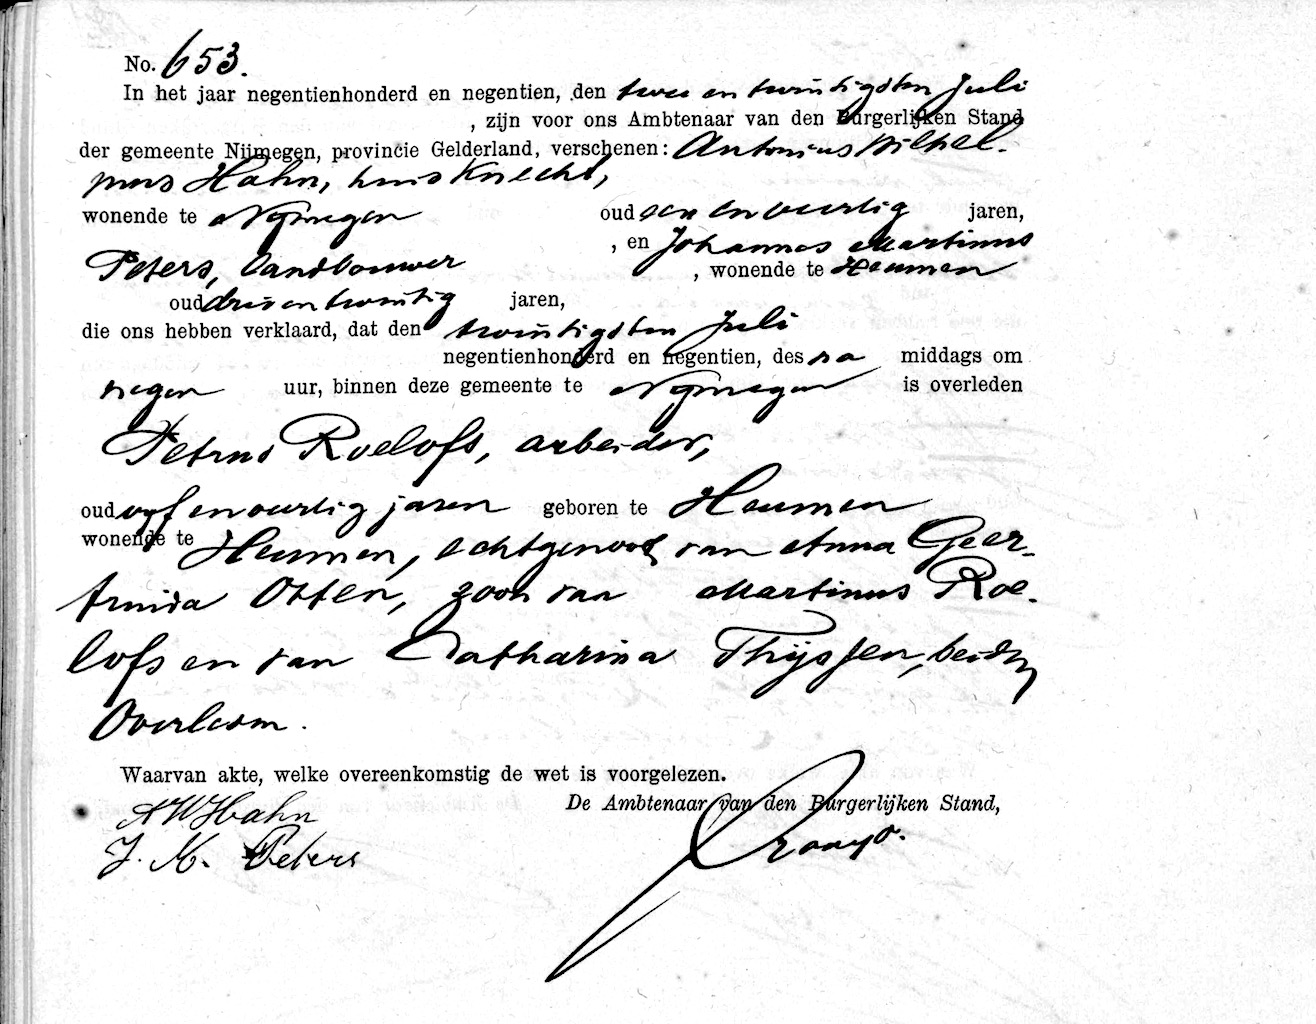 No. 653.
In het jaar negentienhonderd en negentien, den twee en twintigsten Juli
, zijn voor ons Ambtenaar van den Burgerlijken Stand
der gemeente Nijmegen, provincie Gelderland, verschenen: Antonius Wilhel-
mus Hahn, huisknecht,
wonende te Nijmegen oud een en veertig jaren,
, en Johannes Martinus
Peters, landbouwer , wonende te Heumen
oud drie en twintig jaren,
die ons hebben verklaard, dat den twintigsten Juli
negentienhonderd en negentien, des na middags om
negen uur, binnen deze gemeente te Nijmegen is overleden
Petrus Roelofs, arbeider,
oud vyf en veertig jaren geboren te Heumen
wonende te Heumen, echtgenoot van Anna Geer-
truida Otten, zoon van Martinus Roe-
lofs en van Catharina Thijssen, beiden
Overleden.
Waarvan akte, welke overeenkomstig de wet is voorgelezen.
De Ambtenaar van den Burgerlijken Stand,
AWHahn
J. M. Peters